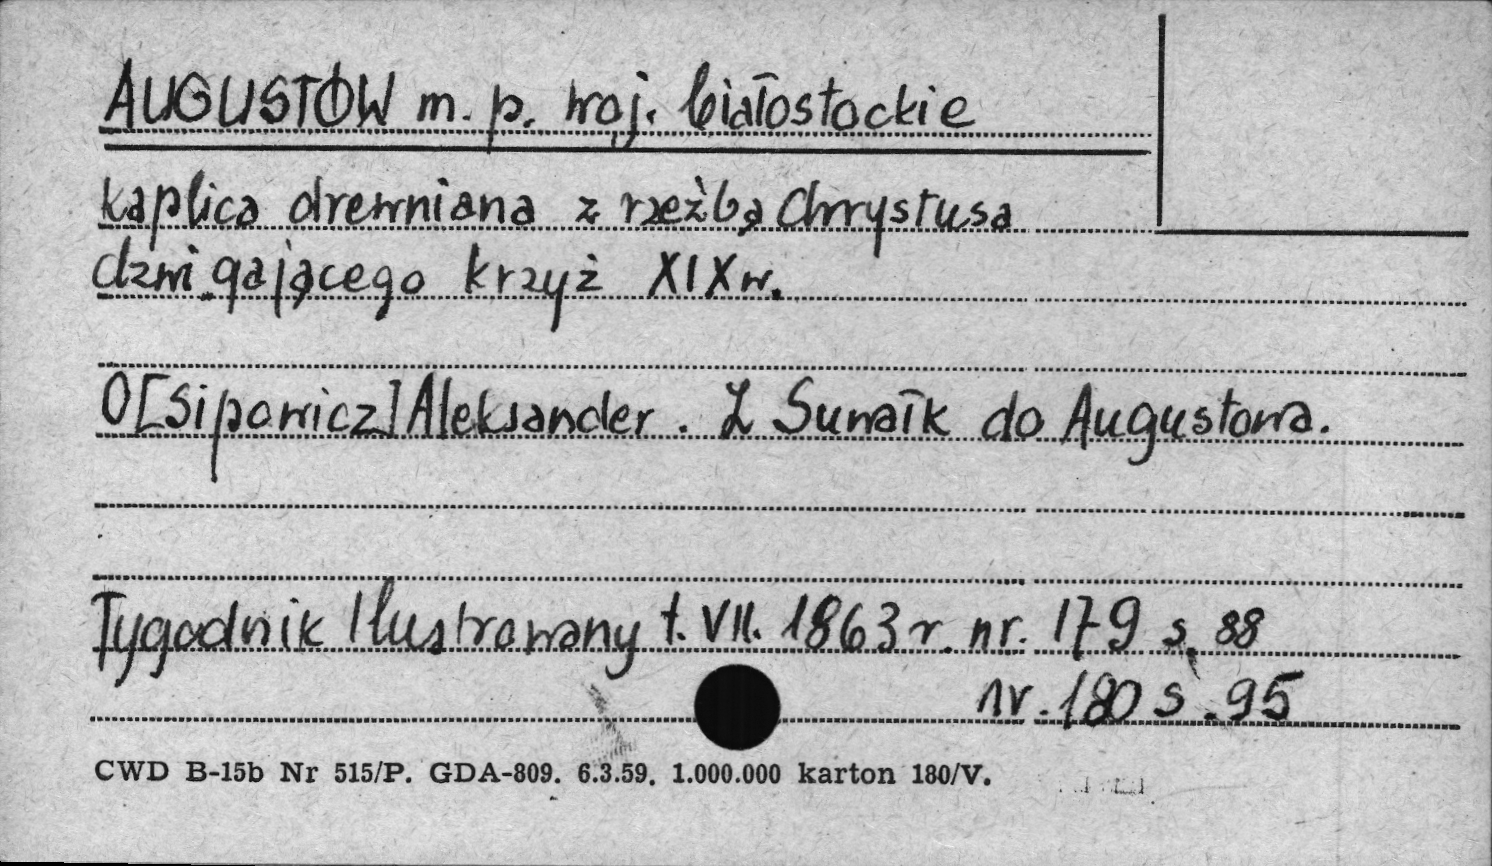 AUGUSTÓW m. p. woj. białostockie
kaplica drewniana z rzeźbą Chrystusa
dzwigającego krzyż XIX w.
O[sipowicz] Aleksander. Z Suwałk do Augustowa.
Tygodnik Ilustrowany t. VII. 1863 r. nr. 179 s. 88
nr. 180 s. 95
CWD B-15b Nr 515/P. GDA-809. 6.3.59. 1.000.000 karton 180/V.